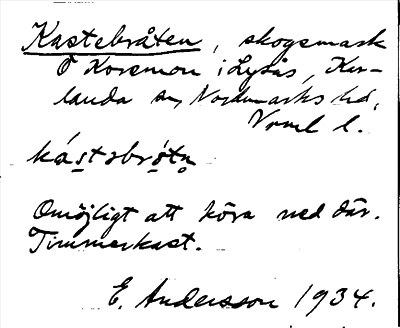 Kastebråten, skogsmark
Ö Korsmon i Lysås, Kar-
landa sn, Nordmarks hd,
Vrml l.
kástəbrò̩tn̥
Omöjligt att köra ned där.
Timmerkast.
E. Andersson 1934.